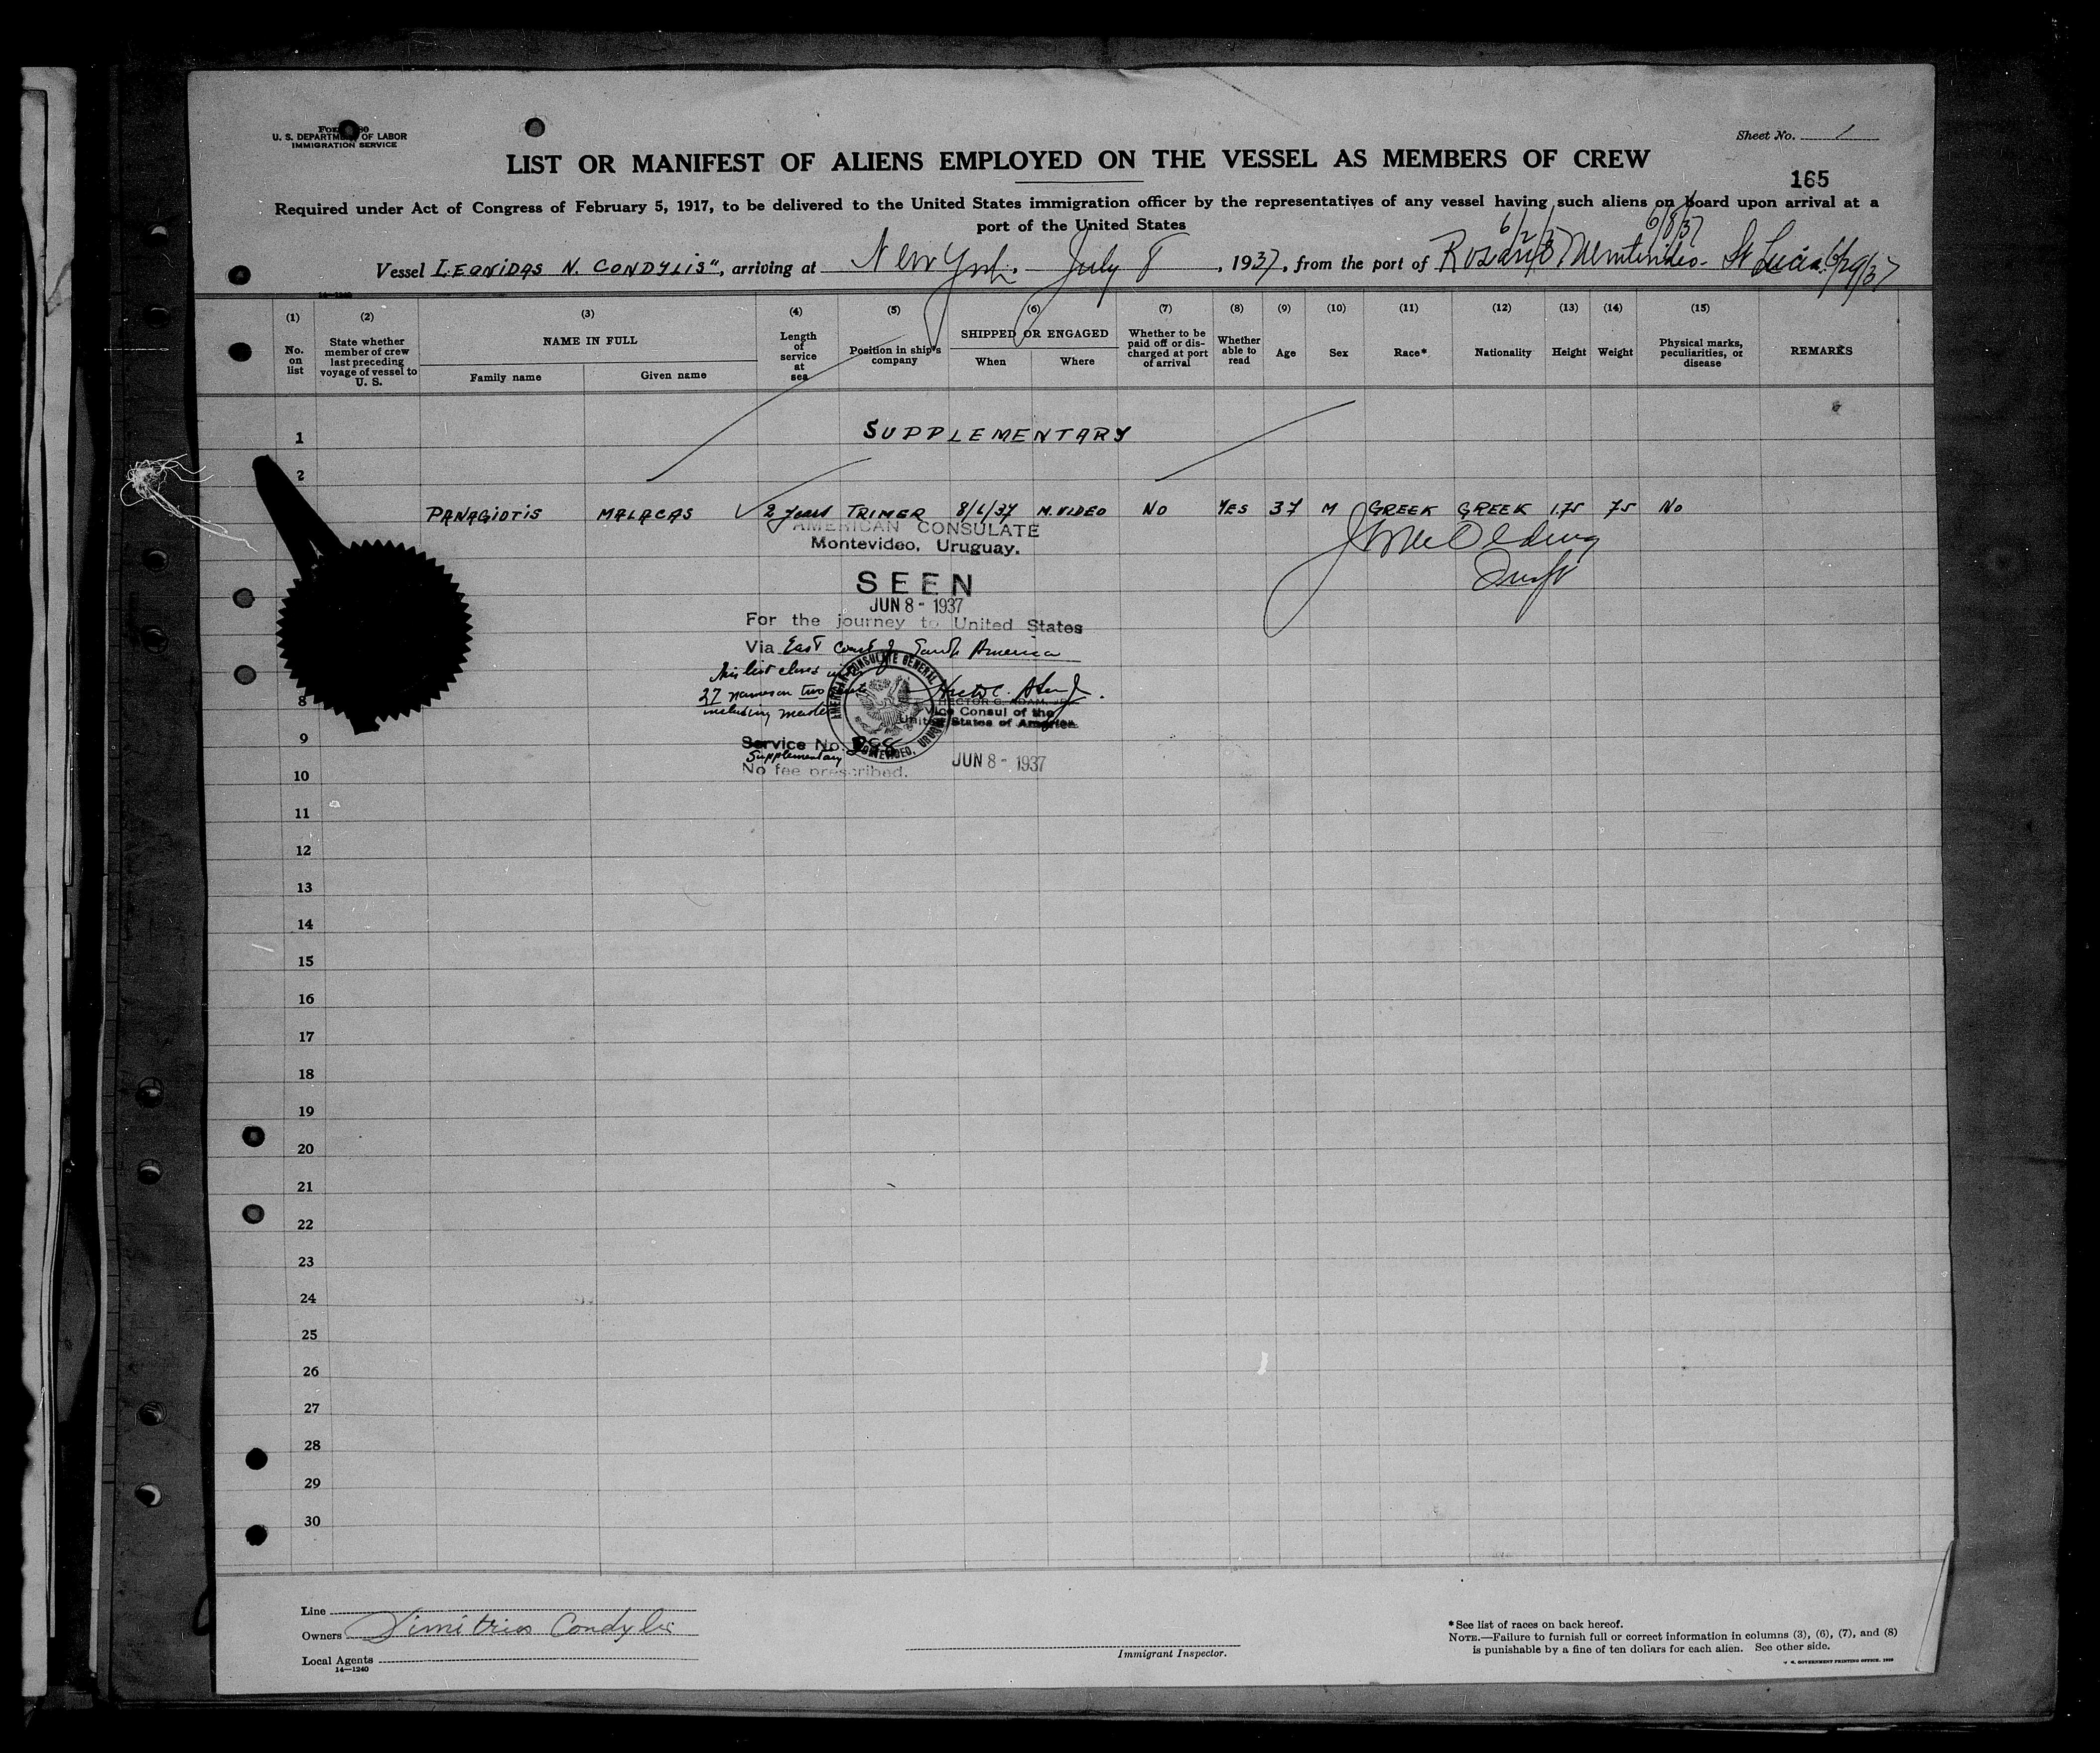 Sheet No. 1
U. S. DEPARTMENT OF LABOR
IMMIGRATION SERVICE
LIST OR MANIFEST OF ALIENS EMPLOYED ON THE VESSEL AS MEMBERS OF CREW
165
Required under Act of Congress of February 5, 1917, to be delivered to the United States immigration officer by the representatives of any vessel having such aliens on board upon arrival at a
port of the United States
6/2/37 6/8/37
Vessel LEONIDAS N. CONDYLIS", arriving at New York. July 8, 1937, from the port of Rosario Montevideo - St Lucia 6/29/37
(1) (2) (3) (4) (5) (6) (7) (8) (9) (10) (11) (12) (13) (14) (15)
No. on list
State whether member of crew last preceding voyage of vessel to U. S.
NAME IN FULL
Family name
Given name
Length of service at sea
Position in ship's company
SHIPPED OR ENGAGED
When
Where
Whether to be paid off or discharged at port of arrival
Whether able to read
Age
Sex
Race*
Nationality
Height
Weight
Physical marks, peculiarities, or disease
REMARKS
1 SUPPLEMENTARY
2
PANAGIOTIS MALACAS 2 years TRIMER 8/6/37 M.VIDEO NO YES 37 M GREEK GREEK 1.75 75 NO
AMERICAN CONSULATE
Montevideo, Uruguay.
SEEN
JUN 8 - 1937
For the journey to United States
Via East Coast of South America
This list closes with
27 names on two
including master
AMERICAN CONSULATE GENERAL
MONTEVIDEO, URUGUAY
HECTOR C. ADAM, JR.
Vice Consul of the
United States of America
Service No.
Supplementary
No fee prescribed.
JUN 8 - 1937
8
9
10
11
12
13
14
15
16
17
18
19
20
21
22
23
24
25
26
27
28
29
30
Line
Owners Dimitrios Condylis
Local Agents
14—1240
Immigrant Inspector.
*See list of races on back hereof.
NOTE.—Failure to furnish full or correct information in columns (3), (6), (7), and (8)
is punishable by a fine of ten dollars for each alien. See other side.
U. S. GOVERNMENT PRINTING OFFICE